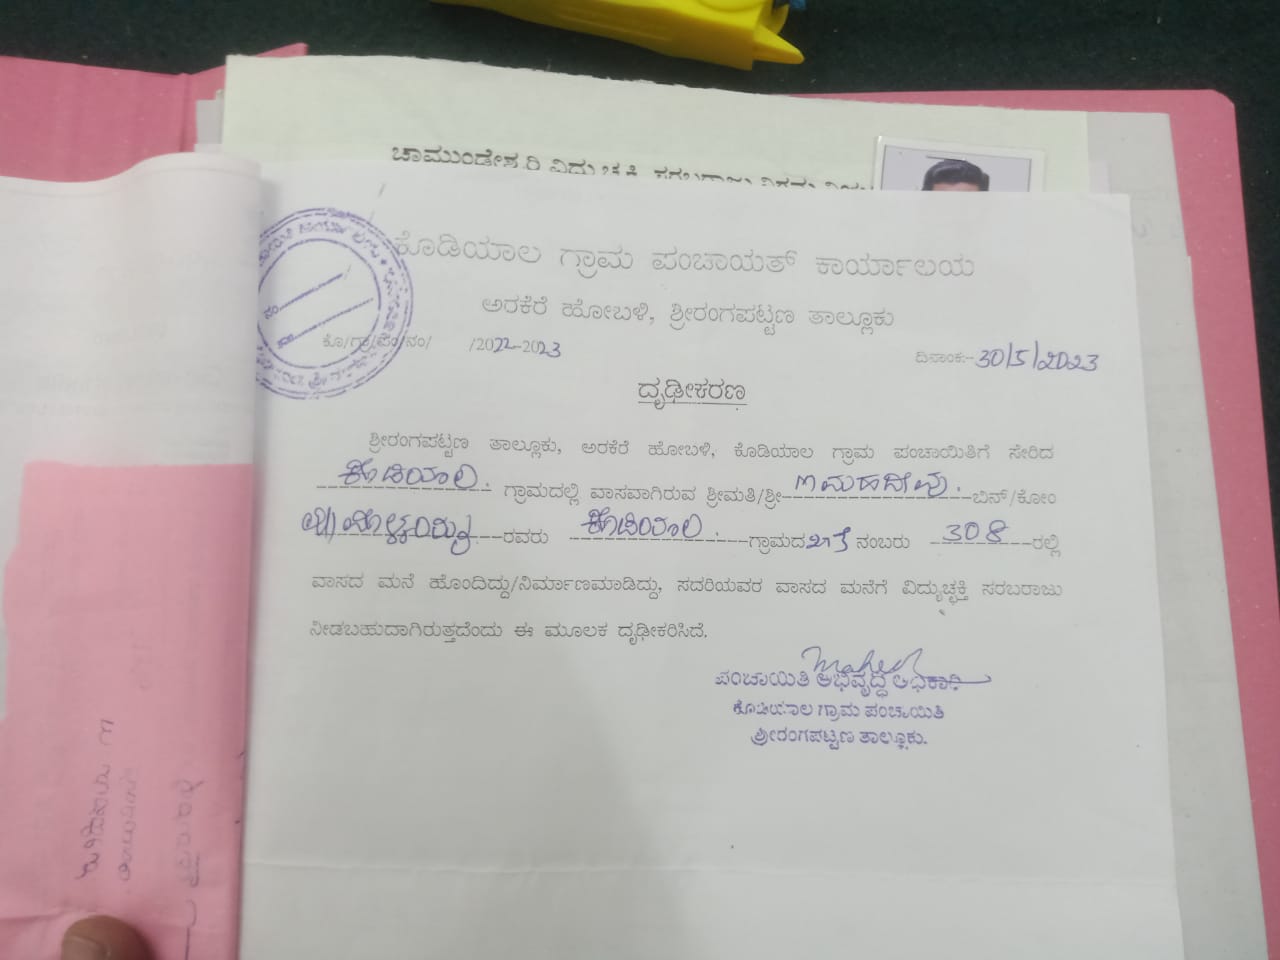 ಕೊಡಿಯಾಲ ಗ್ರಾಮ ಪಂಚಾಯತ್ ಕಾರ್ಯಾಲಯ
ಅರಕೆರೆ ಹೋಬಳಿ, ಶ್ರೀರಂಗಪಟ್ಟಣ ತಾಲ್ಲೂಕು
ಕೊ/ಗ್ರಾ/ಪಂ/ನಂ/ /2022-2023 ದಿನಾಂಕ:- 30/5/2023
ದೃಢೀಕರಣ
ಶ್ರೀರಂಗಪಟ್ಟಣ ತಾಲ್ಲೂಕು, ಅರಕೆರೆ ಹೋಬಳಿ, ಕೊಡಿಯಾಲ ಗ್ರಾಮ ಪಂಚಾಯಿತಿಗೆ ಸೇರಿದ
ಕೊಡಿಯಾಲ ಗ್ರಾಮದಲ್ಲಿ ವಾಸವಾಗಿರುವ ಶ್ರೀಮತಿ/ಶ್ರೀ ಬಿನ್/ಕೋಂ
ರವರು ಕೊಡಿಯಾಲ ಗ್ರಾಮದ ನಂಬರು 308 ರಲ್ಲಿ
ವಾಸದ ಮನೆ ಹೊಂದಿದ್ದು/ನಿರ್ಮಾಣಮಾಡಿದ್ದು, ಸದರಿಯವರ ವಾಸದ ಮನೆಗೆ ವಿದ್ಯುಚ್ಛಕ್ತಿ ಸರಬರಾಜು
ನೀಡಬಹುದಾಗಿರುತ್ತದೆಂದು ಈ ಮೂಲಕ ದೃಢೀಕರಿಸಿದೆ.
ಪಂಚಾಯಿತಿ ಅಭಿವೃದ್ಧಿ ಅಧಿಕಾರಿ
ಕೊಡಿಯಾಲ ಗ್ರಾಮ ಪಂಚಾಯಿತಿ
ಶ್ರೀರಂಗಪಟ್ಟಣ ತಾಲ್ಲೂಕು.